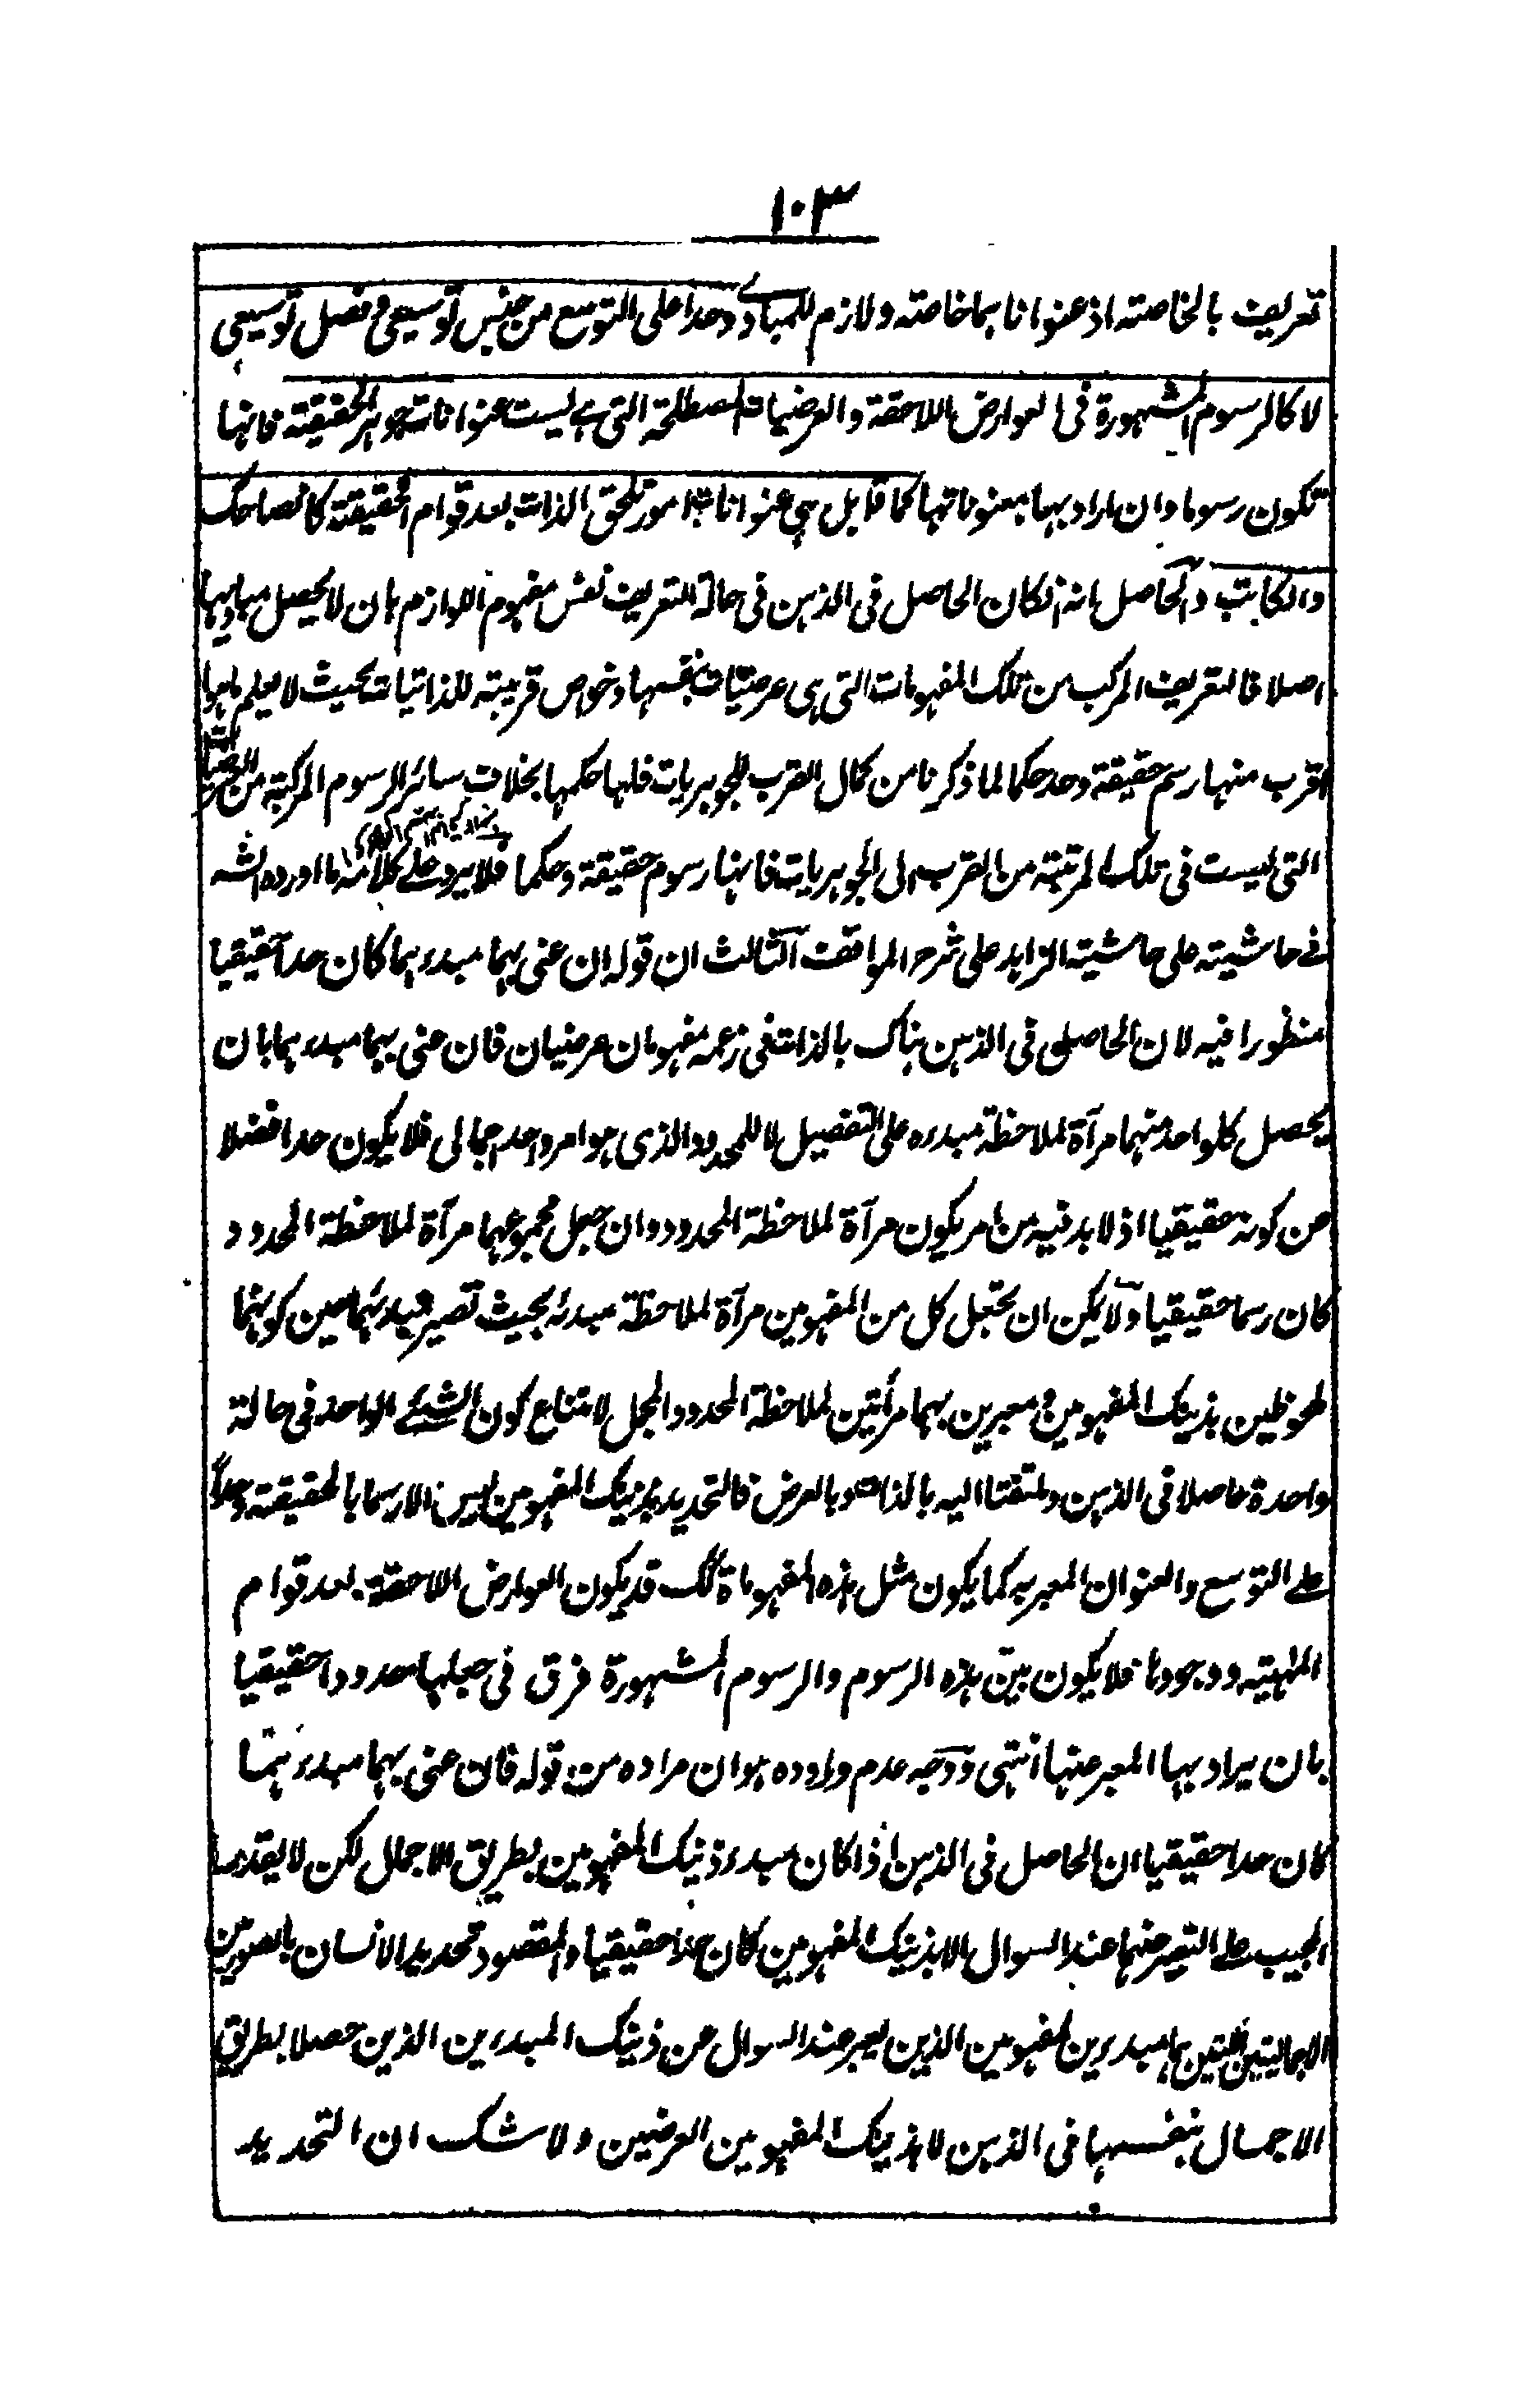 ١٠٣
تعريف بالخاصته اذ عنوانا بهما خاصته ولازم للمبادى وحدا على التوسع من جنس توسيعى وفصل توسيعى
لا كالرسوم المشهورة فى العوارض اللاحقة والعرضيات المصطلحة التى هے ليست عنوانات جوهر الحقيقة فانها
تكون رسوما وان اراد بها معنوناتها كما قابل هى عنوانات امور تلحق الذات بعد قوام الحقيقة كالضاحك
والكاتب والحاصل انه انكان الحاصل فى الذهن فى حالة التعريف نفس مفهوم اللوازم بان لا يحصل مباديها
اصلا فالتعريف المركب من تلك المفهومات التى هى عرضيات بنفسها وخواص قريبته للذاتيات بحيث لا يعلم ما هوا
اقرب منها رسم حقيقة وحد حكما لما ذكرنا من كمال القرب للجوهريات فلها حكمها بخلاف سائر الرسوم المركبة من العرضيات
التى ليست فى تلك المرتبته من القرب الى الجوهريات فانها رسوم حقيقة وحكما فلا يرد على كلامه ما اورده الشه
فے حاشيته على حاشيته الزاهد على شرح المواقف الثالث ان قوله ان عنى بهما مبدء بهما كان حدا حقيقيا
منظورا فيه لان الحاصل فى الذهن هناك بالذات فى زعمه مفهومان عرضيان فان عنى بهما مبدء بهما بان
يحصل كلواحد منهما مرآة لملاحظة مبدءه على التفصيل لا للمحدود الذى هو امر واحد اجمالى فلا يكون حدا فضلا
عن كونه حقيقيا اذ لا بد فيه من امر يكون مرآة لملاحظة المحدود وان جعل مجموعهما مرآة لملاحظة المحدود
كان رسما حقيقيا ولا يمكن ان يجعل كل من المفهومين مرآة لملاحظة مبدئه بحيث تصير مبدئهما حين كونهما
ملحوظين بذينك المفهومين ومعبرين بهما مرأتين لملاحظة المحدود المجمل لامتناع كون الشئے الواحد فى حالة
واحدة حاصلا فى الذهن وملتفتا اليه بالذات وبالعرض فالتحديد بذينك المفهومين ليس الا رسما بالحقيقته وحدا
علے التوسع والعنوان المعبر به كما يكون مثل هذه المفهوماة كك قد يكون العوارض اللاحقة بعد قوام
الماهيته ووجودها فلا يكون بين هذه الرسوم والرسوم المشهورة فرق فى جعلها حدودا حقيقيا
بان يراد بها المعبر عنها انتهى ووجه عدم وروده هو ان مراده من قوله فان عنى بهما مبدء بهما
كان حدا حقيقيا ان الحاصل فى الذهن اذا كان مبدء ذينك المفهومين بطريق الاجمال لكن لا يقدر
المجيب علے التعبير عنهما عند السوال الا بذينك المفهومين كان حدا حقيقيا والمقصود تحديد الانسان بالصورتين
الاجماليتين اللتين هما مبدءين لمفهومين الذين يعبر عند السوال عن ذينك المبدءين الذين حصلا بطريق
الاجمال بنفسها فى الذهن لا بذينك المفهومين العرضين ولا شك ان التحديد